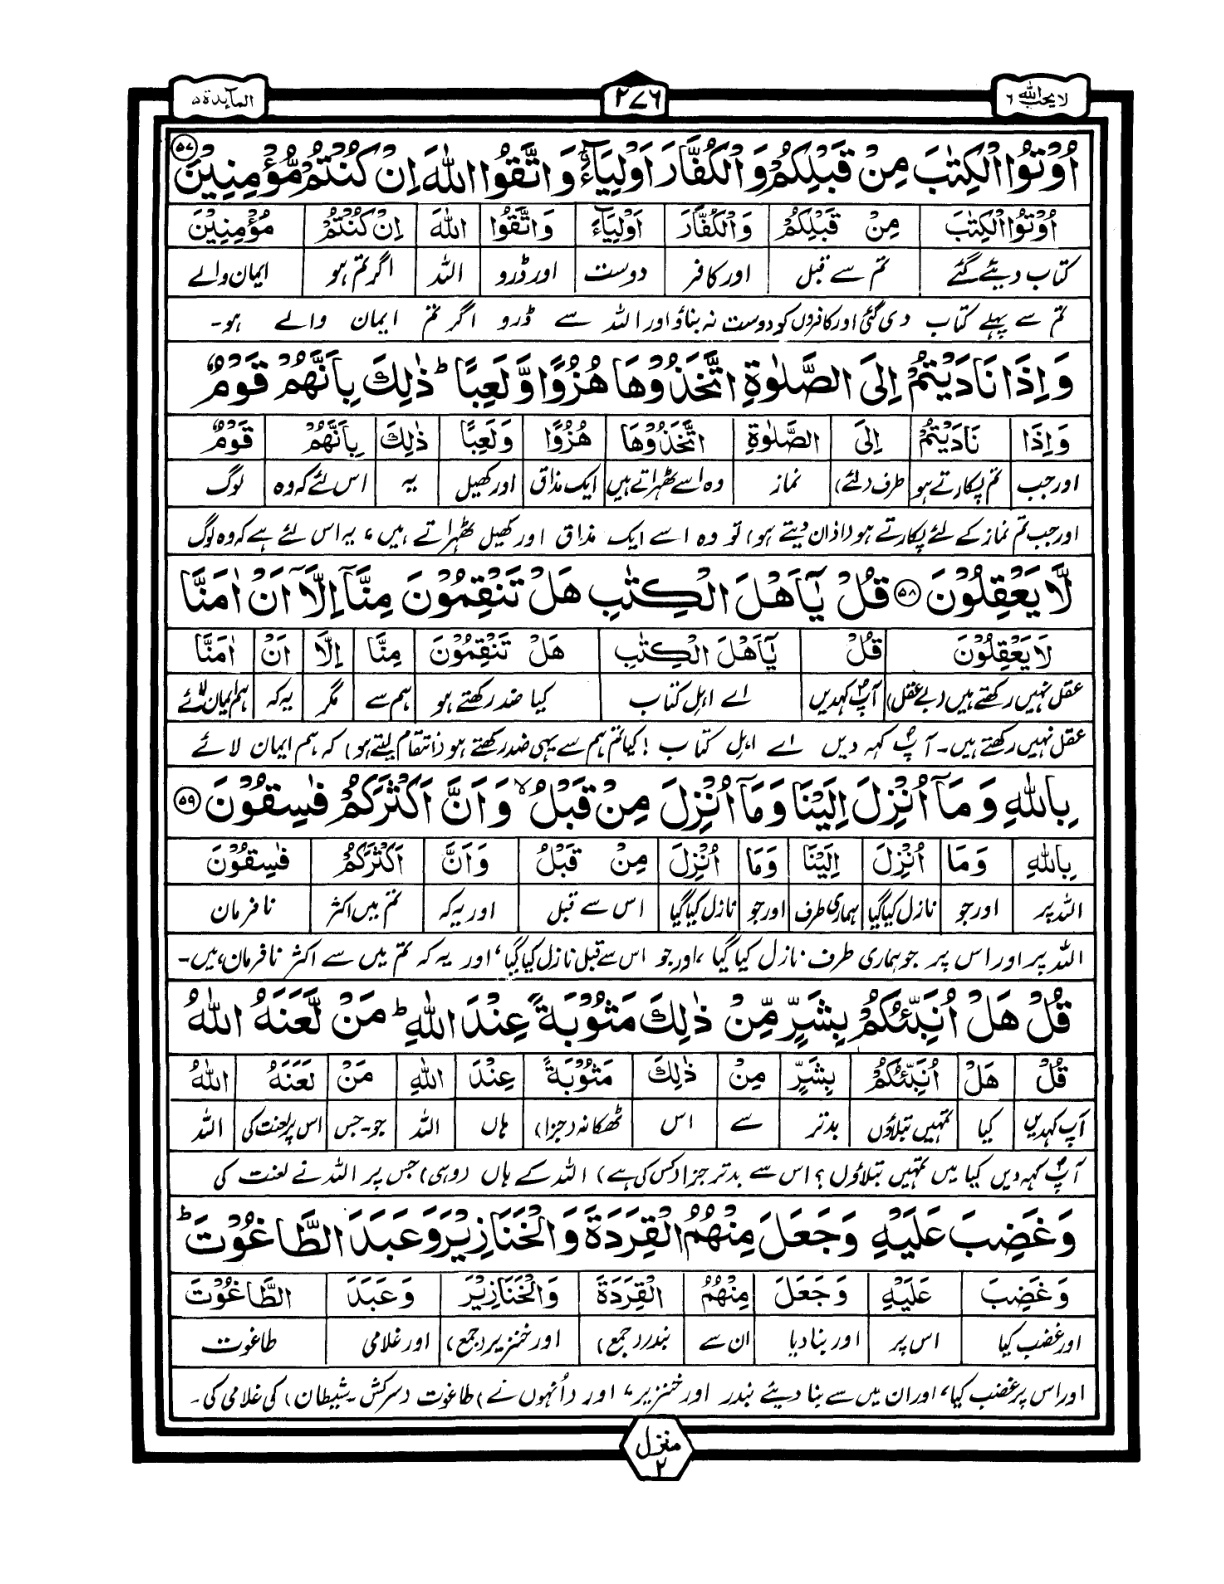 لا یحب اللہ ۶
۲۷۶
المآىِٕدة ۵
اُوْتُوا الْكِتٰبَ مِنْ قَبْلِكُمْ وَ الْكُفَّارَ اَوْلِيَآءَ ۚ وَ اتَّقُوا اللّٰهَ اِنْ كُنْتُمْ مُّؤْمِنِيْنَ ۵۷
اُوْتُوا الْكِتٰبَ مِنْ قَبْلِكُمْ وَالْكُفَّارَ اَوْلِيَآءَ وَاتَّقُوا اللّٰهَ اِنْ كُنْتُمْ مُؤْمِنِيْنَ
کتاب دیئے گئے تم سے قبل اور کافر دوست اور ڈرو اللہ اگر تم ہو ایمان والے
تم سے پہلے کتاب دی گئی اور کافروں کو دوست نہ بناؤ اور اللہ سے ڈرو اگر تم ایمان والے ہو۔
وَ اِذَا نَادَيْتُمْ اِلَى الصَّلٰوةِ اتَّخَذُوْهَا هُزُوًا وَّ لَعِبًا ؕ ذٰلِكَ بِاَنَّهُمْ قَوْمٌ
وَ اِذَا نَادَيْتُمْ اِلَى الصَّلٰوةِ اتَّخَذُوْهَا هُزُوًا وَلَعِبًا ذٰلِكَ بِاَنَّهُمْ قَوْمٌ
اور جب تم پکارتے ہو طرف (لئے) نماز وہ اسے ٹھہراتے ہیں ایک مذاق اور کھیل یہ اس لئے کہ وہ لوگ
اور جب تم نماز کے لئے پکارتے ہو (اذان دیتے ہو) تو وہ اسے ایک مذاق اور کھیل ٹھہراتے ہیں، یہ اس لئے ہے کہ وہ لوگ
لَّا يَعْقِلُوْنَ ۵۸ قُلْ يٰۤاَهْلَ الْكِتٰبِ هَلْ تَنْقِمُوْنَ مِنَّاۤ اِلَّاۤ اَنْ اٰمَنَّا
لَا يَعْقِلُوْنَ قُلْ يٰۤاَهْلَ الْكِتٰبِ هَلْ تَنْقِمُوْنَ مِنَّا اِلَّا اَنْ اٰمَنَّا
عقل نہیں رکھتے ہیں (بے عقل) آپؐ کہدیں اے اہل کتاب کیا ضد رکھتے ہو ہم سے مگر یہ کہ ہم ایمان لائے
عقل نہیں رکھتے ہیں۔ آپؐ کہہ دیں اے اہل کتاب! کیا تم ہم سے یہی ضد رکھتے ہو (انتقام لیتے ہو) کہ ہم ایمان لائے
بِاللّٰهِ وَ مَاۤ اُنْزِلَ اِلَيْنَا وَ مَاۤ اُنْزِلَ مِنْ قَبْلُ ۙ وَ اَنَّ اَكْثَرَكُمْ فٰسِقُوْنَ ۵۹
بِاللّٰهِ وَمَا اُنْزِلَ اِلَيْنَا وَمَا اُنْزِلَ مِنْ قَبْلُ وَاَنَّ اَكْثَرَكُمْ فٰسِقُوْنَ
اللہ پر اور جو نازل کیا گیا ہماری طرف اور جو نازل کیا گیا اس سے قبل اور یہ کہ تم میں اکثر نافرمان
اللہ پر اور اس پر جو ہماری طرف نازل کیا گیا، اور جو اس سے قبل نازل کیا گیا، اور یہ کہ تم میں سے اکثر نافرمان ہیں۔
قُلْ هَلْ اُنَبِّئُكُمْ بِشَرٍّ مِّنْ ذٰلِكَ مَثُوْبَةً عِنْدَ اللّٰهِ ؕ مَنْ لَّعَنَهُ اللّٰهُ
قُلْ هَلْ اُنَبِّئُكُمْ بِشَرٍّ مِنْ ذٰلِكَ مَثُوْبَةً عِنْدَ اللّٰهِ مَنْ لَعَنَهُ اللّٰهُ
آپ کہدیں کیا تمہیں بتلاؤں بدتر سے اس ٹھکانہ (جزا) ہاں اللہ جو۔جس اس پر لعنت کی اللہ
آپؐ کہہ دیں کیا میں تمہیں بتلاؤں؟ اس سے بدتر جزا (کس کی ہے) اللہ کے ہاں (وہی) جس پر اللہ نے لعنت کی
وَ غَضِبَ عَلَيْهِ وَ جَعَلَ مِنْهُمُ الْقِرَدَةَ وَ الْخَنَازِيْرَ وَ عَبَدَ الطَّاغُوْتَ ؕ
وَ غَضِبَ عَلَيْهِ وَ جَعَلَ مِنْهُمُ الْقِرَدَةَ وَالْخَنَازِيْرَ وَ عَبَدَ الطَّاغُوْتَ
اور غضب کیا اس پر اور بنا دیا ان سے بندر (جمع) اور خنزیر (جمع) اور غلامی طاغوت
اور اس پر غضب کیا، اور ان میں سے بنا دیئے بندر اور خنزیر، اور (انہوں نے) طاغوت (سرکش۔ شیطان) کی غلامی کی۔
منزل ۲